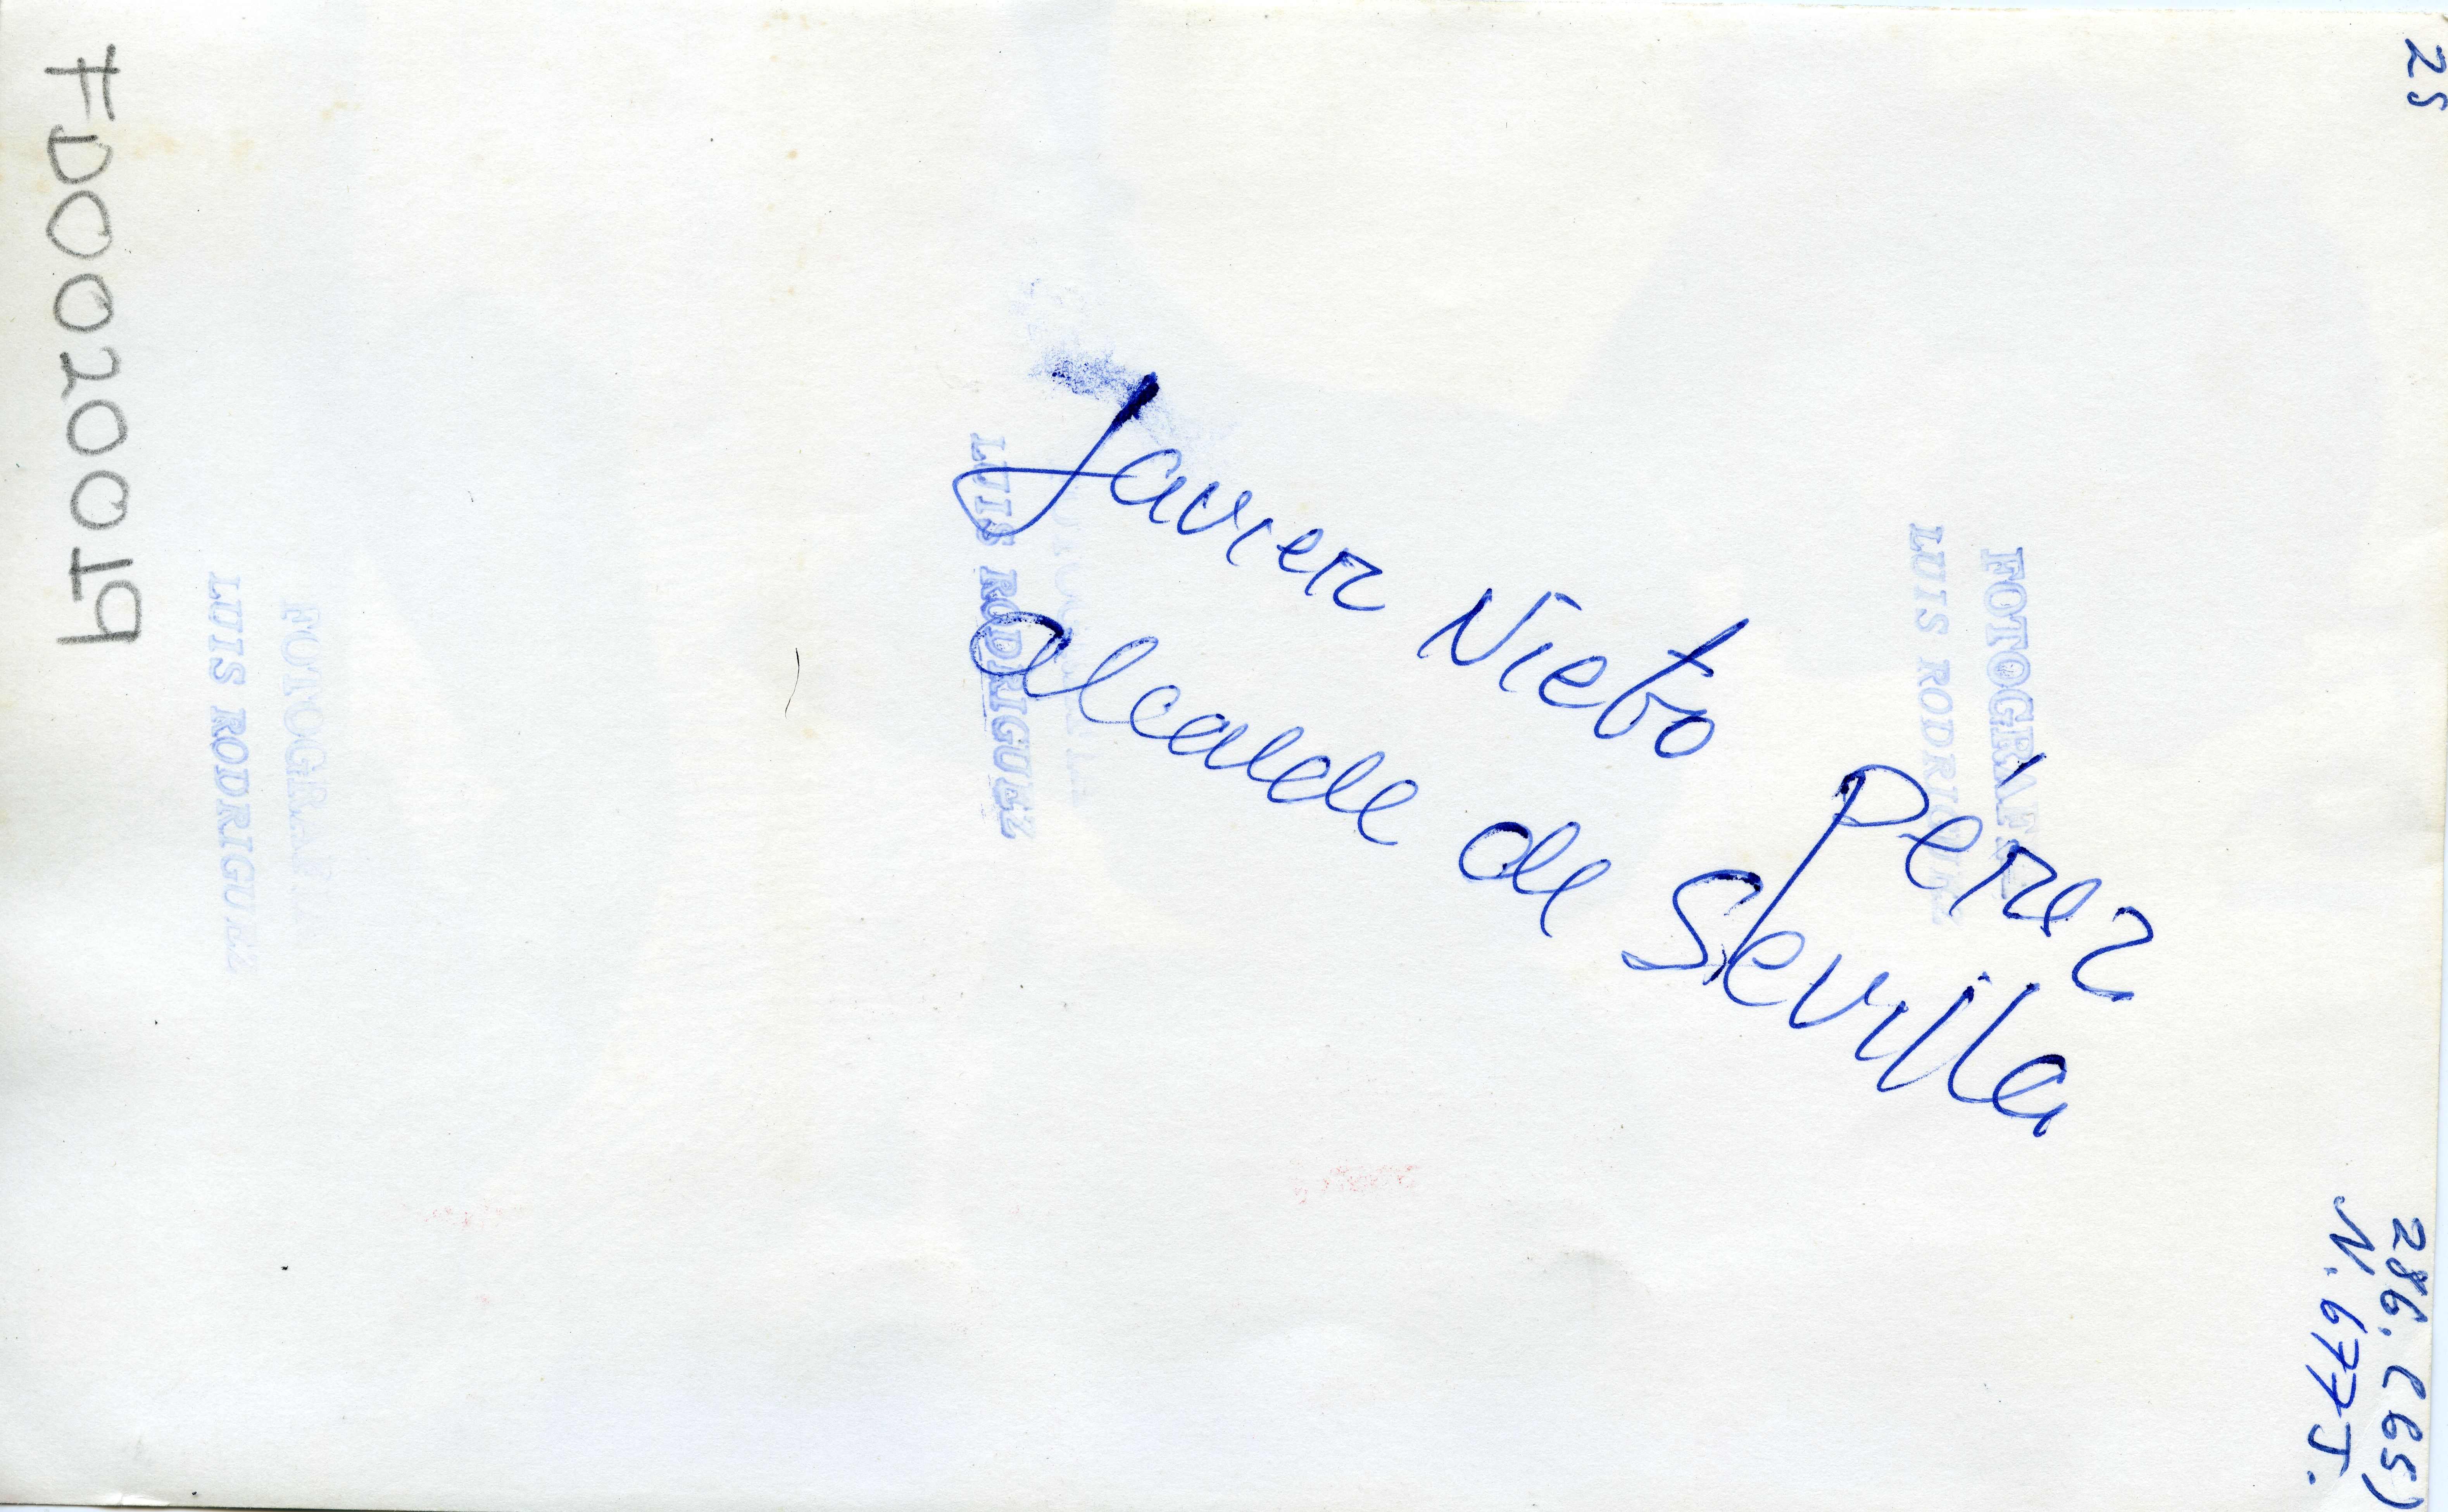 FD0020019
Javier Nieto Pérez
Alcalde de Sevilla
FOTOGRAFIA
LUIS RODRIGUEZ
LUIS RODRIGUEZ
LUIS RODRIGUEZ
25
286. (65)
N. 677 J.